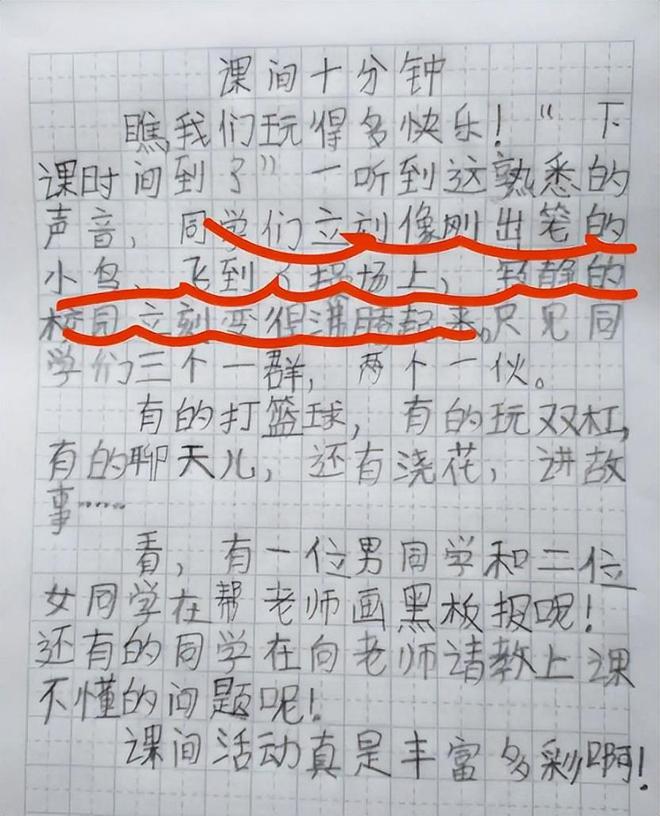 课间十分钟
瞧我们玩得多快乐！“下
课时间到了”一听到这熟悉的
声音，同学们立刻像刚出笼的
小鸟，飞到了操场上，寂静的
校园立刻变得沸腾起来。只见同
学们三个一群，两个一伙。
有的打篮球，有的玩双杠，
有的聊天儿，还有浇花，讲故
事……
看，有一位男同学和二位
女同学在帮老师画黑板报呢！
还有的同学在向老师请教上课
不懂的问题呢！
课间活动真是丰富多彩啊！